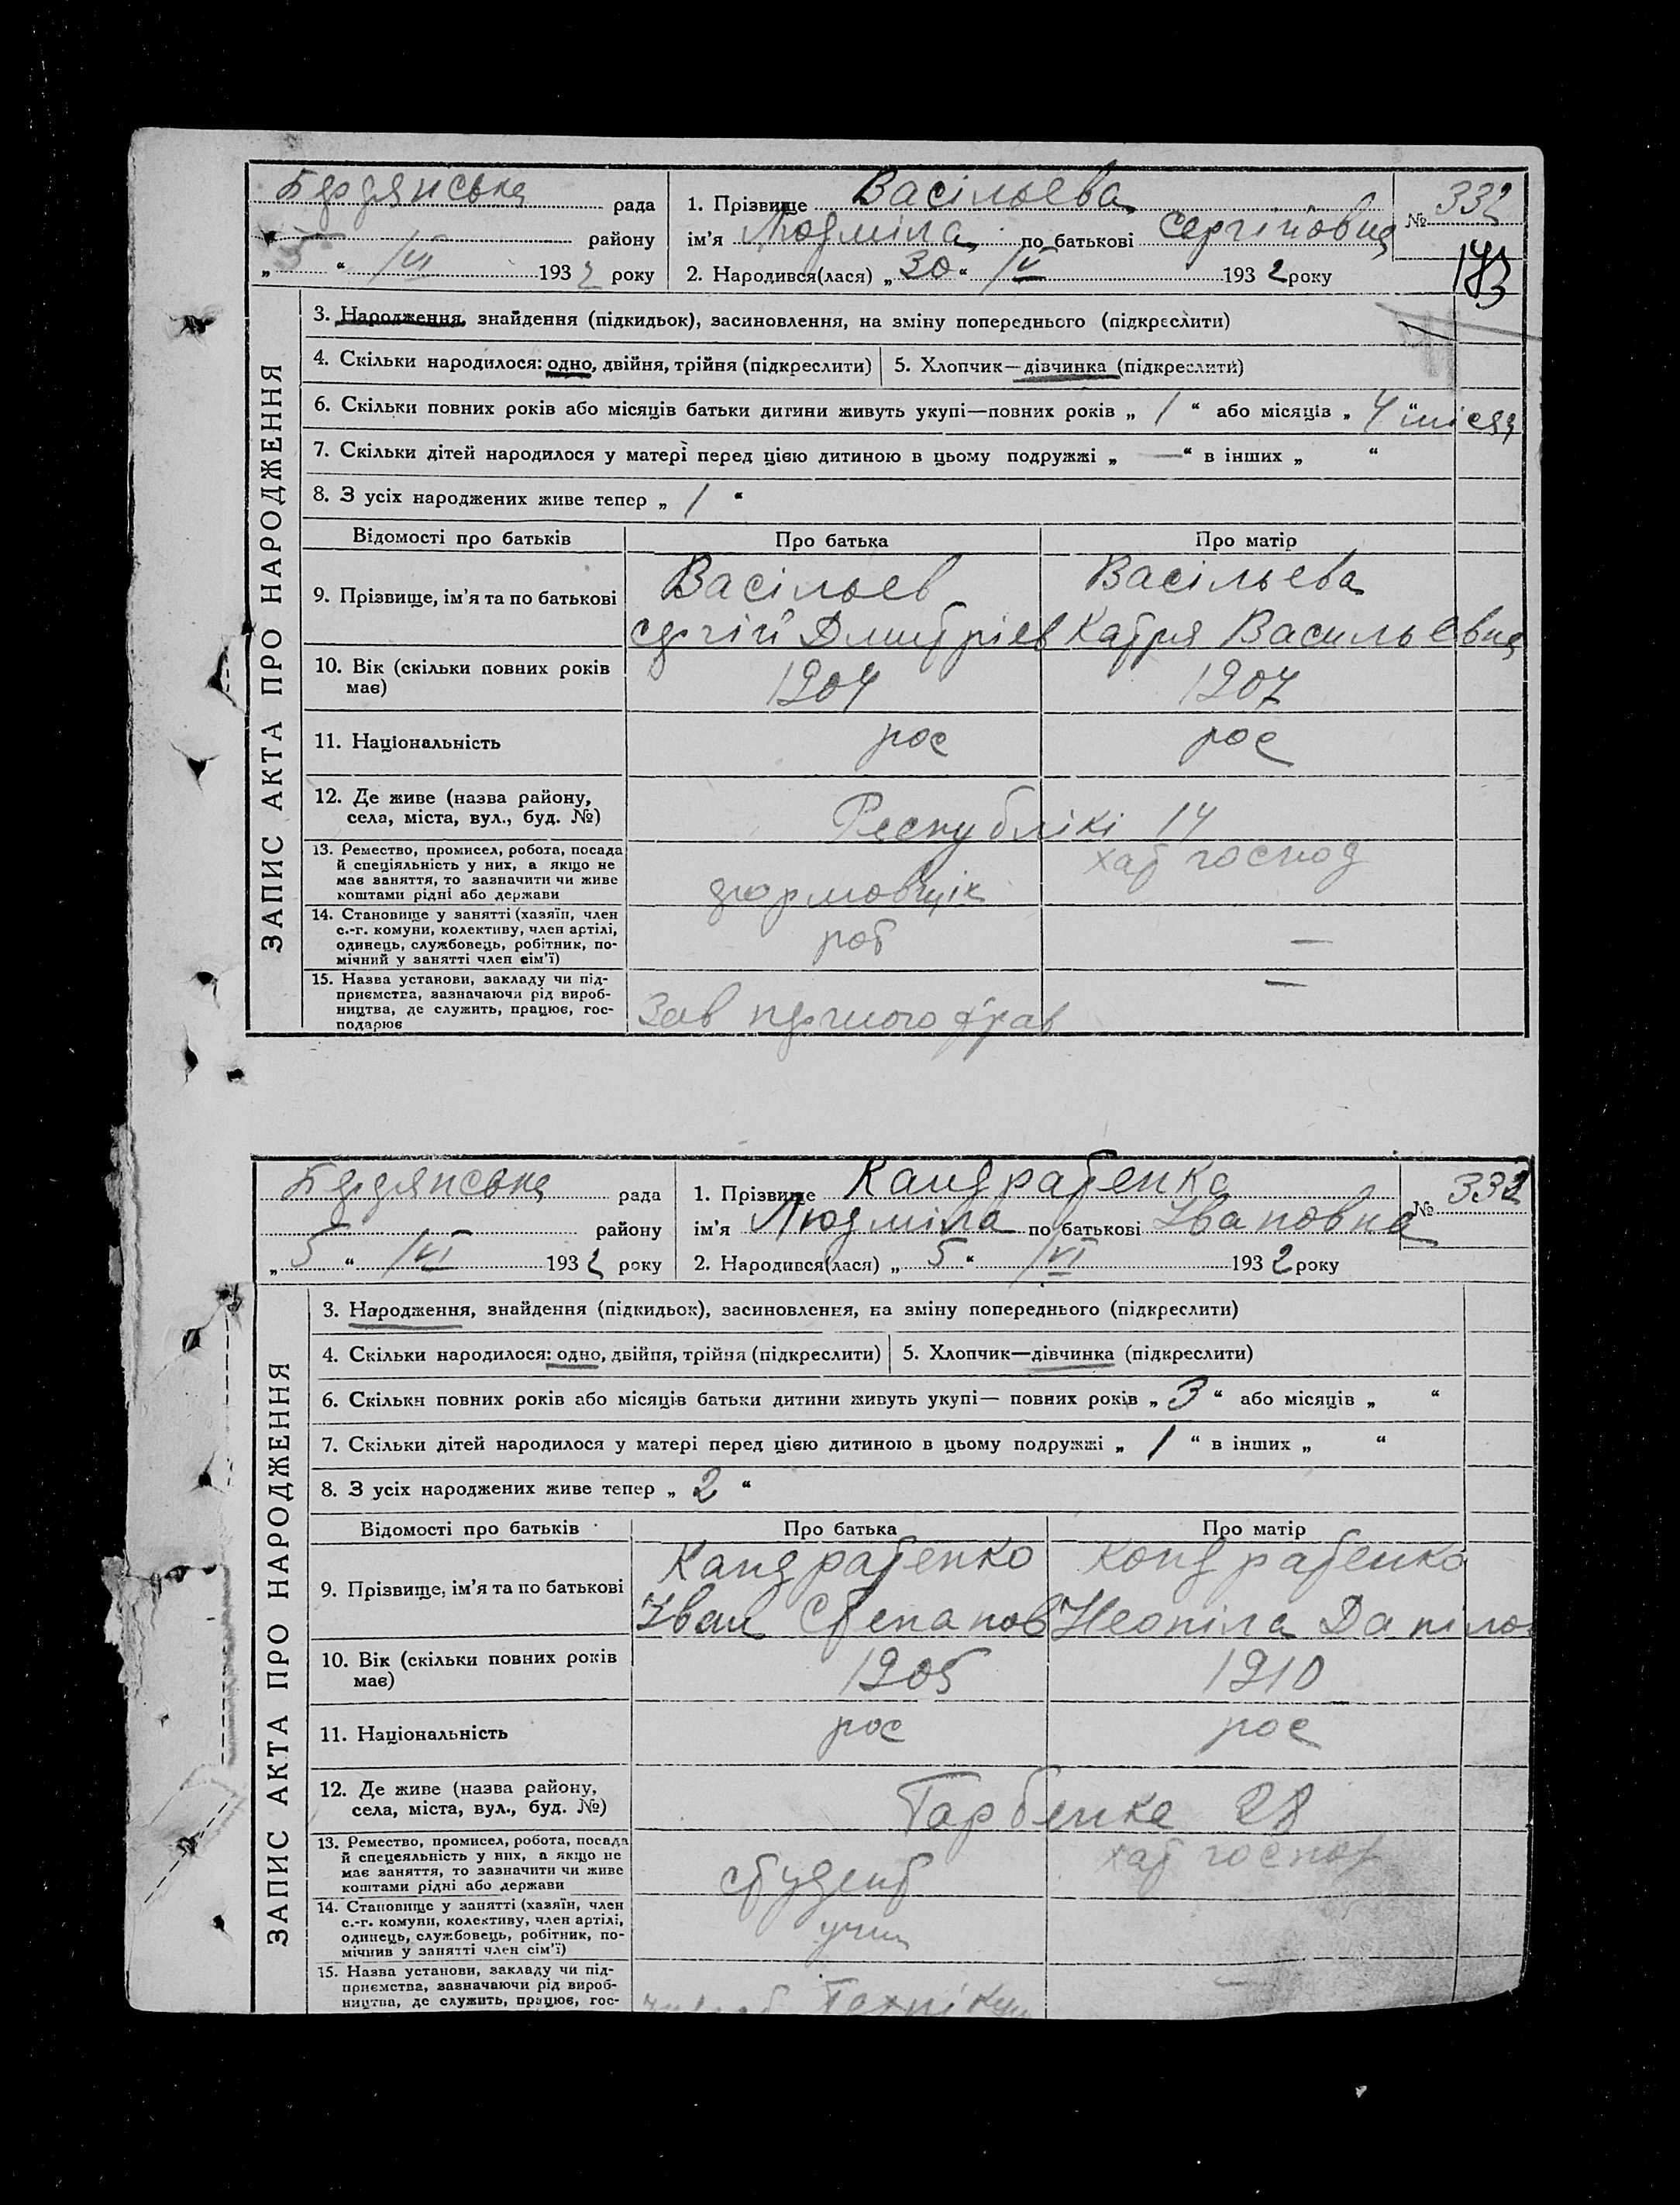 Бердянська рада
району
„ 5 “ /VI 1932 року
1. Прізвище Васільева
ім’я Людміла по батькові Сергійовна
2. Народився(лася) „ 30 “ /V 1932 року
№ 332
173
ЗАПИС АКТА ПРО НАРОДЖЕННЯ
3. Народження, знайдення (підкидьок), засиновлення, на зміну попереднього (підкреслити)
4. Скільки народилося: одно, двійня, трійня (підкреслити)
5. Хлопчик—дівчинка (підкреслити)
6. Скільки повних років або місяців батьки дитини живуть укупі—повних років „ 1 “ або місяців „ 4 “ місяц
7. Скільки дітей народилося у матері перед цією дитиною в цьому подружжі „ — “ в інших „ “
8. З усіх народжених живе тепер „ 1 “
Відомості про батьків Про батька Про матір
9. Прізвище, ім’я та по батькові
Васільев
Сергій Дмитріев
Васільева
Катря Васильевна
10. Вік (скільки повних років
має)
1904 1907
11. Національність рос рос
12. Де живе (назва району,
села, міста, вул., буд. №)
Республікі 14
13. Ремество, промисел, робота, посада
й спеціяльність у них, а якщо не
має заняття, то зазначити чи живе
коштами рідні або держави
формовщік
хат господ
14. Становище у занятті (хазяїн, член
с.-г. комуни, колективу, член артілі,
одинець, службовець, робітник, по-
мічний у занятті член сім’ї)
роб —
15. Назва установи, закладу чи під-
приємства, зазначаючи рід вироб-
ництва, де служить, працює, гос-
подарює
Зав першого трав —
Бердянська рада
району
„ 5 “ /VI 1932 року
1. Прізвище Кандратенко
ім’я Людміла по батькові Івановна
2. Народився(лася) „ 5 “ /VI 1932 року
№ 332
ЗАПИС АКТА ПРО НАРОДЖЕННЯ
3. Народження, знайдення (підкидьок), засиновлення, на зміну попереднього (підкреслити)
4. Скільки народилося: одно, двійня, трійня (підкреслити)
5. Хлопчик—дівчинка (підкреслити)
6. Скільки повних років або місяців батьки дитини живуть укупі— повних років „ 3 “ або місяців „ “
7. Скільки дітей народилося у матері перед цією дитиною в цьому подружжі „ 1 “ в інших „ “
8. З усіх народжених живе тепер „ 2 “
Відомості про батьків Про батька Про матір
9. Прізвище, ім’я та по батькові
Кандратенко
Іван Степанов
Кондратенко
Неоніла Даніло
10. Вік (скільки повних років
має)
1905 1910
11. Національність рос рос
12. Де живе (назва району,
села, міста, вул., буд. №)
28
13. Ремество, промисел, робота, посада
й спецеяльність у них, а якщо не
має заняття, то зазначити чи живе
коштами рідні або держави
студент
хат господ
14. Становище у занятті (хазяїн, член
с.-г. комуни, колективу, член артілі,
одинець, службовець, робітник, по-
мічнив у занятті член сім’ї)
учн
15. Назва установи, закладу чи під-
приємства, зазначаючи рід вироб-
ництва, де служить, працює, гос-
Технікум —